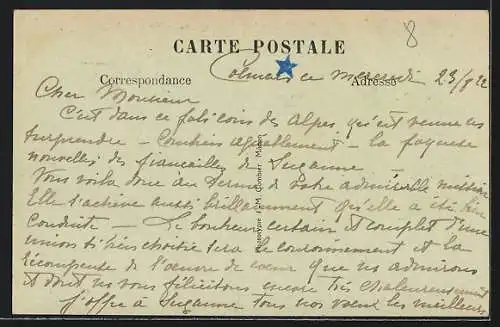 8
CARTE POSTALE
Correspondance
Adresse
Colmars ce mercredi 23/8 22
Cher Monsieur
C'est dans ce joli coin des Alpes qu'est venue nous
surprendre - combien agréablement - la joyeuse
nouvelle des fiancailles de Suzanne.
Vous voila donc au terme de votre admirable mission
Elle s'achève aussi brillamment qu'elle a été bien
Conduite - Le bonheur certain et complet d'une
union si bien choisie sera le couronnement et la
récompense de l'œuvre de cœur que nous admirons
et dont nous vous félicitons encore très chaleureusement
J'offre à Suzanne tous nos vœux les meilleurs
Combier Macon